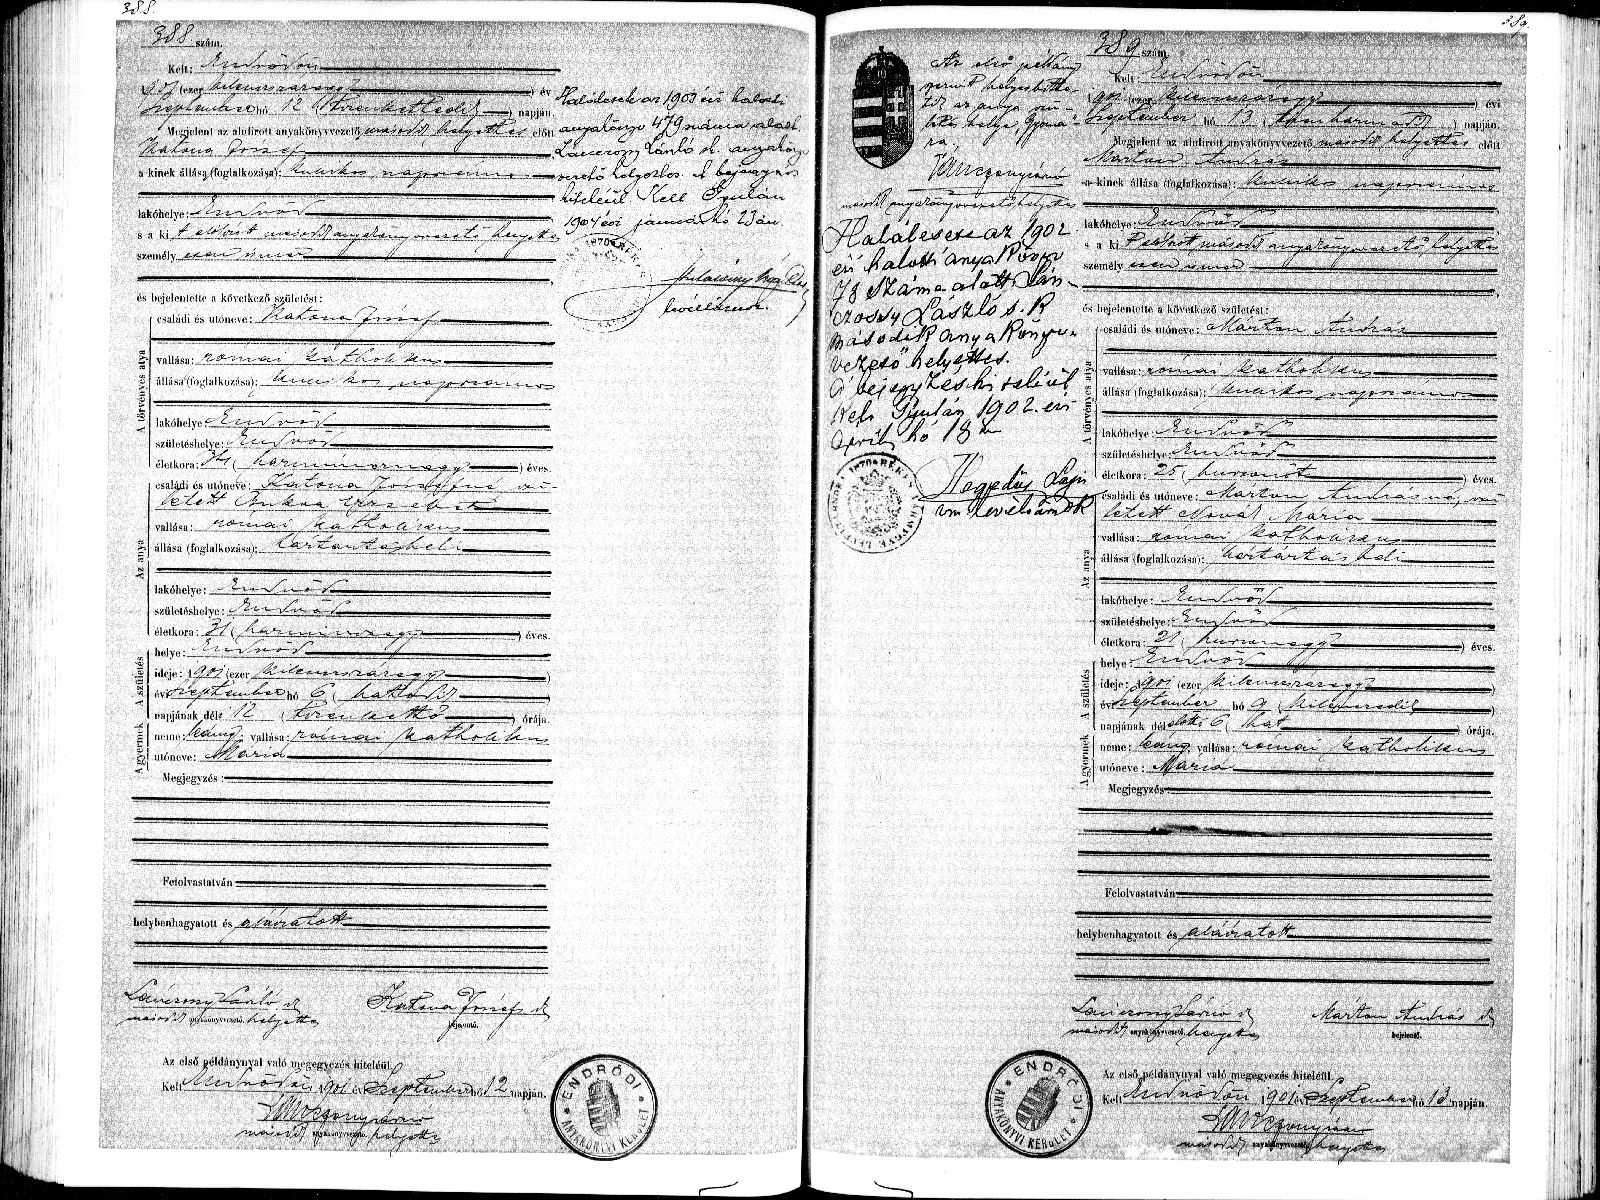 388.
388 szám.
Kelt: Endrődön
1901 (ezer kilenczszázegy) év
Szeptember hó 12 (tizenkettedik) napján.
Megjelent az alulirott anyakönyvvezető második helyettes előtt
Katona József
a kinek állása (foglalkozása): munkás napszámos
lakóhelye: Endrőd
s a ki t alólirt második anyakönyvvezető helyettes
személy esen ismer
és bejelentette a következő születést:
A törvényes atya
családi és utóneve: Katona József
vallása: római katholikus
állása (foglalkozása): munkás napszámos
lakóhelye: Endrőd
születéshelye: Endrőd
életkora: 34 (harmincznegy) éves.
Az anya
családi és utóneve: Katona Józsefné szü-
letett Erzsébet
vallása: római katholikus
állása (foglalkozása): háztartásbeli
lakóhelye: Endrőd
születéshelye: Endrőd
életkora: 31 (harminczegy) éves.
A születés
helye: Endrőd
ideje: 1901 (ezer kilenczszázegy)
évi szeptember hó 6 (hatodik)
napjának déli 12 (tizenkettő) órája.
A gyermek
neme: leány vallása: római katholikus
utóneve: Mária
Megjegyzés:
Felolvastatván
helybenhagyatott és aláiratott
Lanczony László sk
második anyakönyvvezető helyettes
Katona József sk
bejelentő.
Az első példánynyal való megegyezés hiteléül
Kelt Endrődön 1901 évi Szeptember hó 12 napján.
második anyakönyvvezető helyettes
ENDRŐDI
ANYAKÖNYVI KERÜLET
Halálesete az 1903 évi halotti
anyakönyv 479 száma alatt.
Lanczony László sk. anyakönyv
vezető helyettes. A bejegyzés
hiteléül. Kelt Gyulán
1904 évi január hó 23 án.
levéltárnok.
389.
389 szám.
Kelt: Endrődön
1901 (ezer kilenczszázegy) évi
Szeptember hó 13 (tizenharmadik) napján.
Megjelent az alulirott anyakönyvvezető második helyettes előtt
Marton András
a kinek állása (foglalkozása): munkás napszámos
lakóhelye: Endrőd
s a ki t alólirt második anyakönyvvezető helyettes
személy esen ismer
és bejelentette a következő születést:
A törvényes atya
családi és utóneve: Marton András
vallása: római katholikus
állása (foglalkozása): munkás napszámos
lakóhelye: Endrőd
születéshelye: Endrőd
életkora: 25 (huszonöt) éves.
Az anya
családi és utóneve: Marton Andrásné, szü-
letett Novák Mária
vallása: római katholikus
állása (foglalkozása): háztartásbeli
lakóhelye: Endrőd
születéshelye: Endrőd
életkora: 21 (huszonegy) éves.
A születés
helye: Endrőd
ideje: 1901 (ezer kilenczszázegy)
évi szeptember hó 9 (kilenczedik)
napjának dél előtti 6 (hat) órája.
A gyermek
neme: leány vallása: római katholikus
utóneve: Mária
Megjegyzés:
Felolvastatván
helybenhagyatott és aláiratott
második anyakönyvvezető helyettes
Márton András sk
bejelentő.
Az első példánynyal való megegyezés hiteléül
Kelt Endrődön 1901 évi Szeptember hó 13 napján.
második anyakönyvvezető helyettes
ENDRŐDI
ANYAKÖNYVI KERÜLET
Az első példány
szerint helyesbitte-
tik az anya szü-
letési helye, Gyoma-
ra.
második anyakönyvvezető helyettes
Halálesete az 1902
évi halotti anyakönyv
78 száma alatt Lan-
czony László s. k
második anyakönyv-
vezető helyettes.
A bejegyzés hiteléül
Kelt Gyulán, 1902. évi
április hó 18 án
Hegedüs Lajos
vm levéltárnok